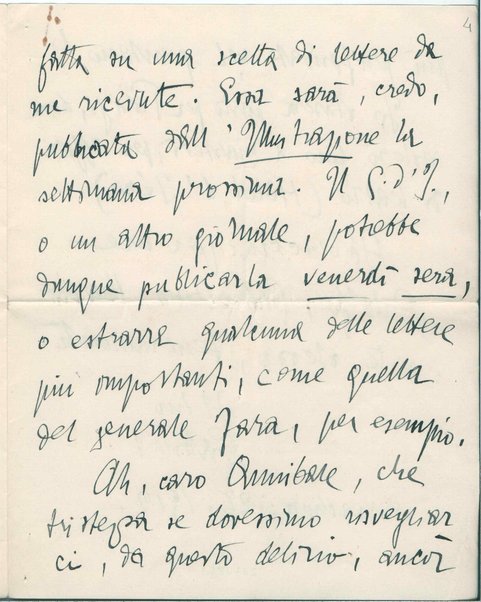 4
fatta su una scelta di lettere da
me ricevute. Essa sarà, credo,
pubblicata dall'Illustrazione la
settimana prossima. Il G. d'I.,
o un altro giornale, potrebbe
dunque pubblicarla venerdì sera,
o estrarra qualcuna delle lettere
più importanti, come quella
del generale Fara, per esempio.
Ah, caro Annibale, che
tristezza se dovessimo risvegliar
ci, da questo delirio, ancòr